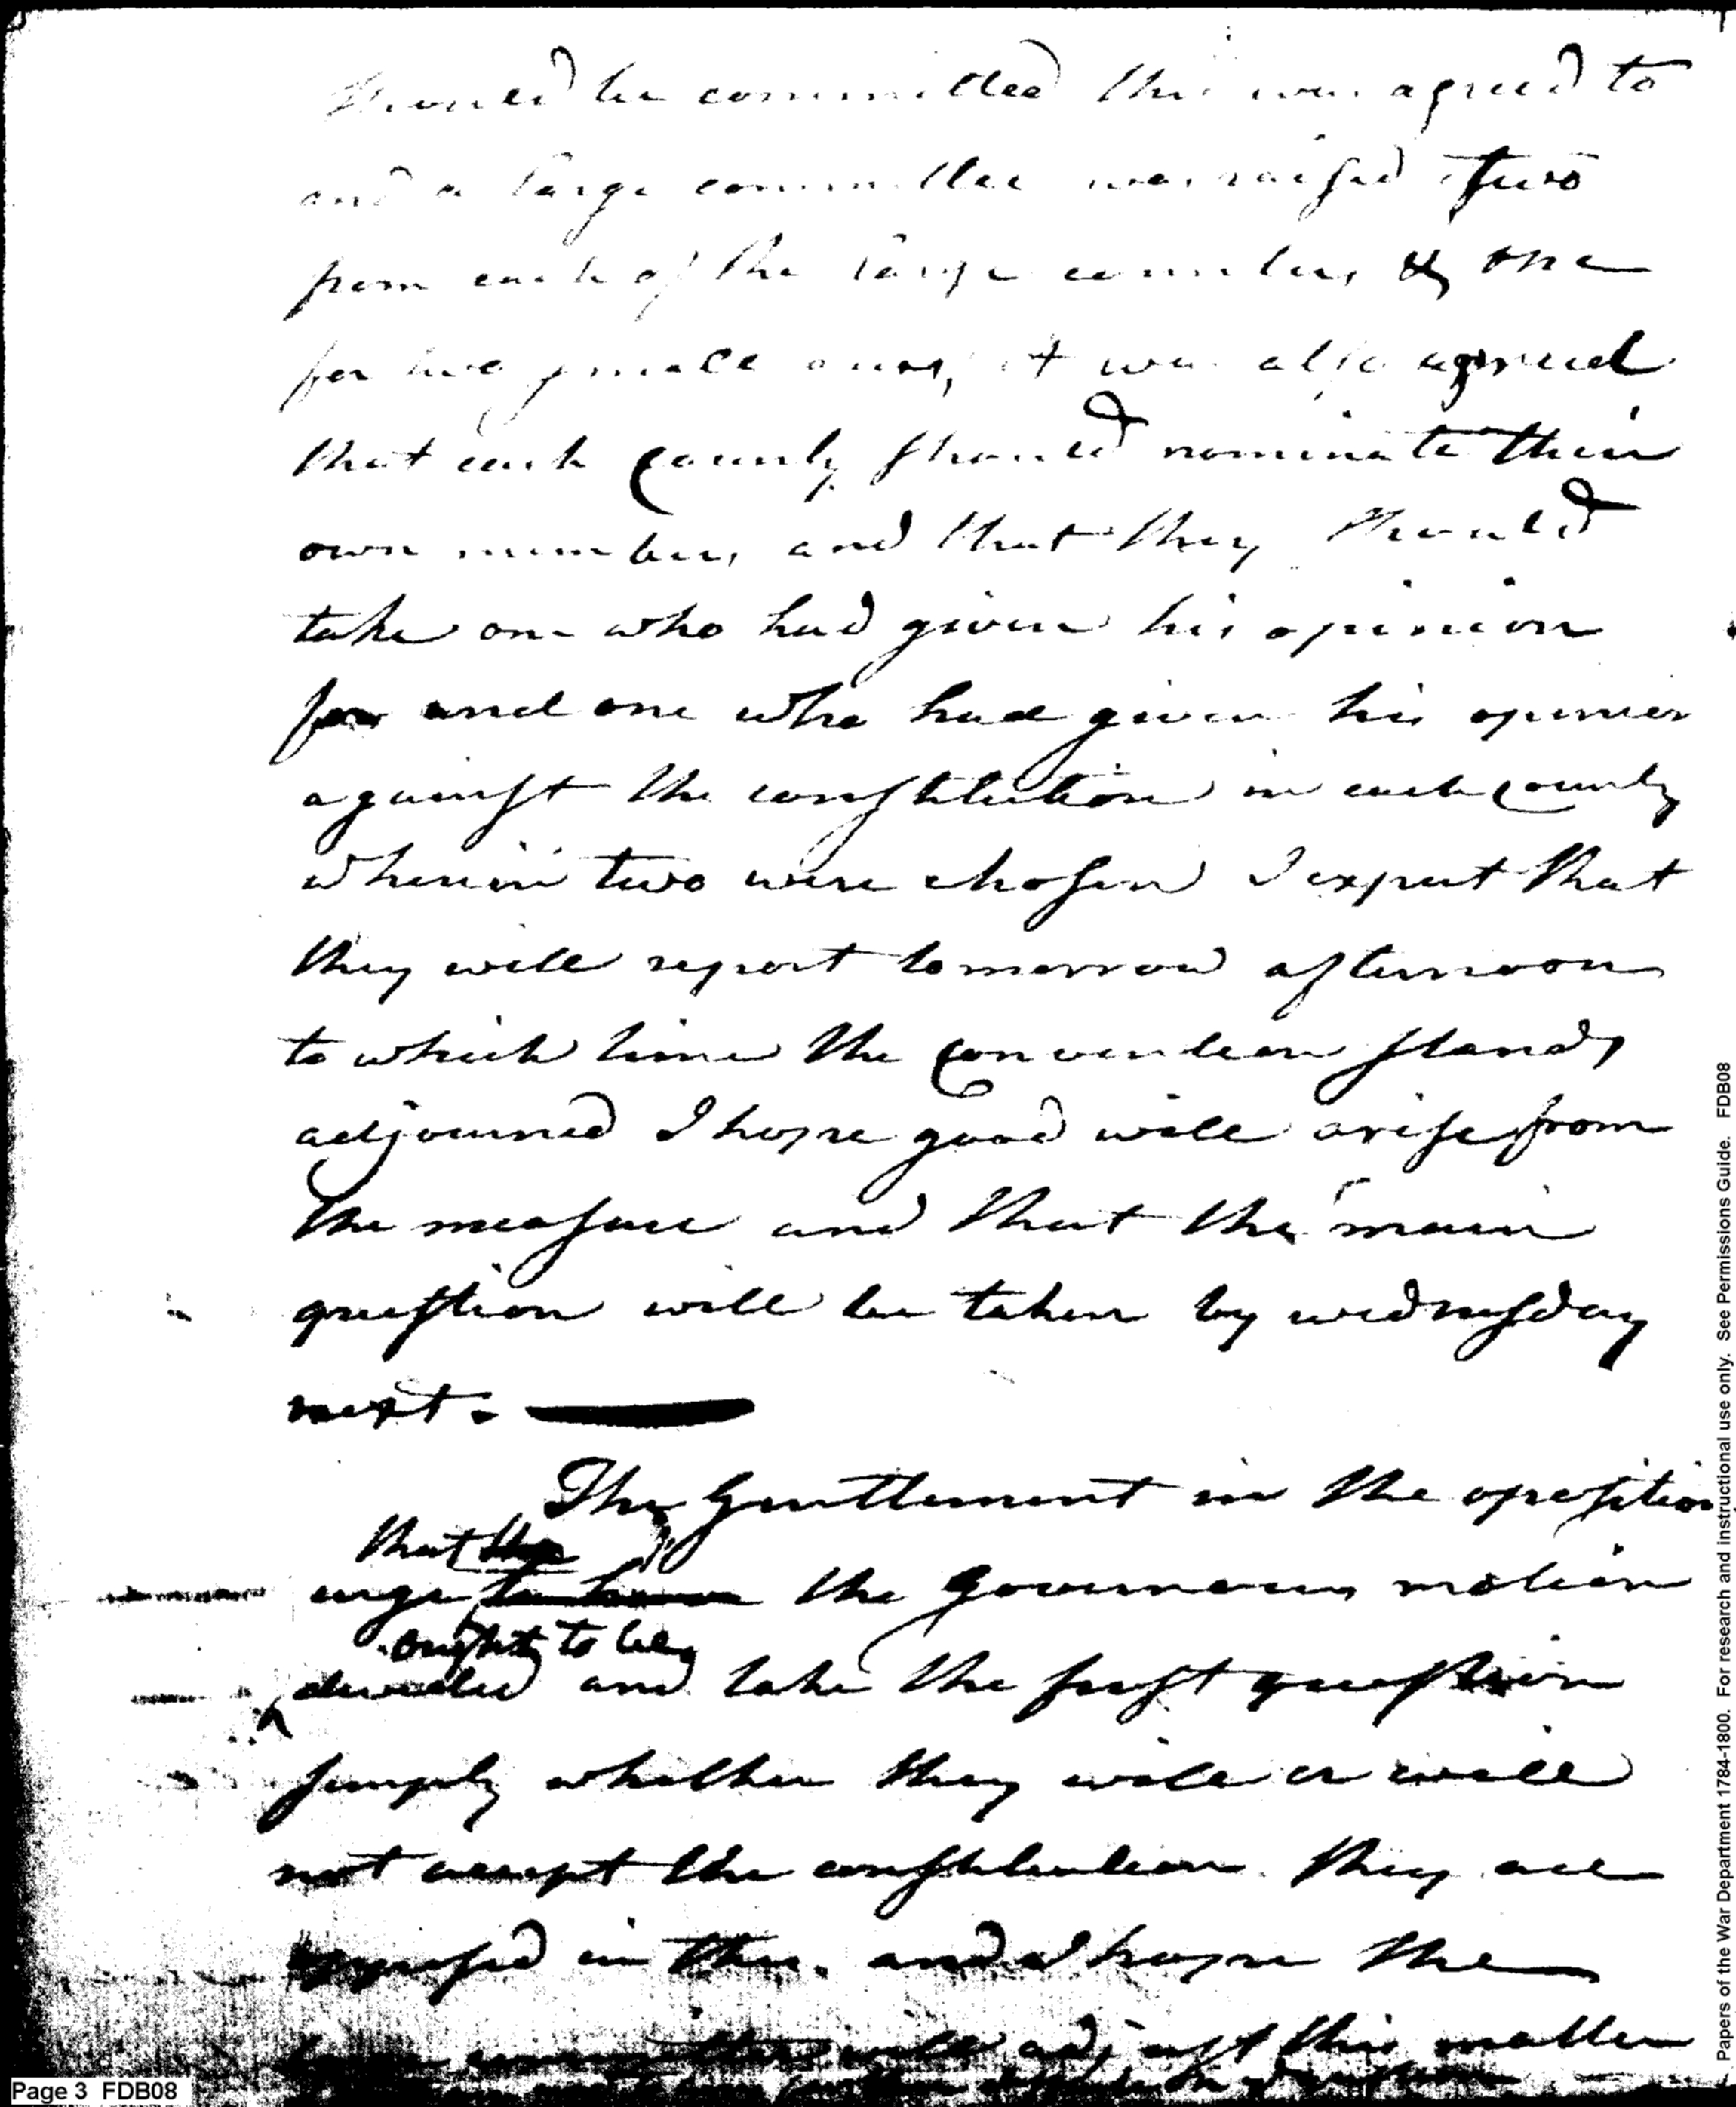 should be committed this was agreed to
and a large committee was raised two
from each of the large counties & one
for two small ones, it was also agreed
that each County should nominate their
own members and that they should
take one who had given his opinion
for and one who had given his opinion
against the constitution in each County
wherein two were chosen I expect that
they will report tomorrow afternoon
to which time the Convention stands
adjourned I hope good will arise from
the measure and that the main
question will be taken by wednesday
next. —
The Gentlement in the oposition
that the
urge to have the Governours motion
ought to be
devided and take the first question
simply whether they will or will
not accept the constitution they are
opposed in this. and I hope the
large committee will adjust this matter
Page 3 FDB08
Papers of the War Department 1784-1800. For research and instructional use only. See Permissions Guide. FDB08